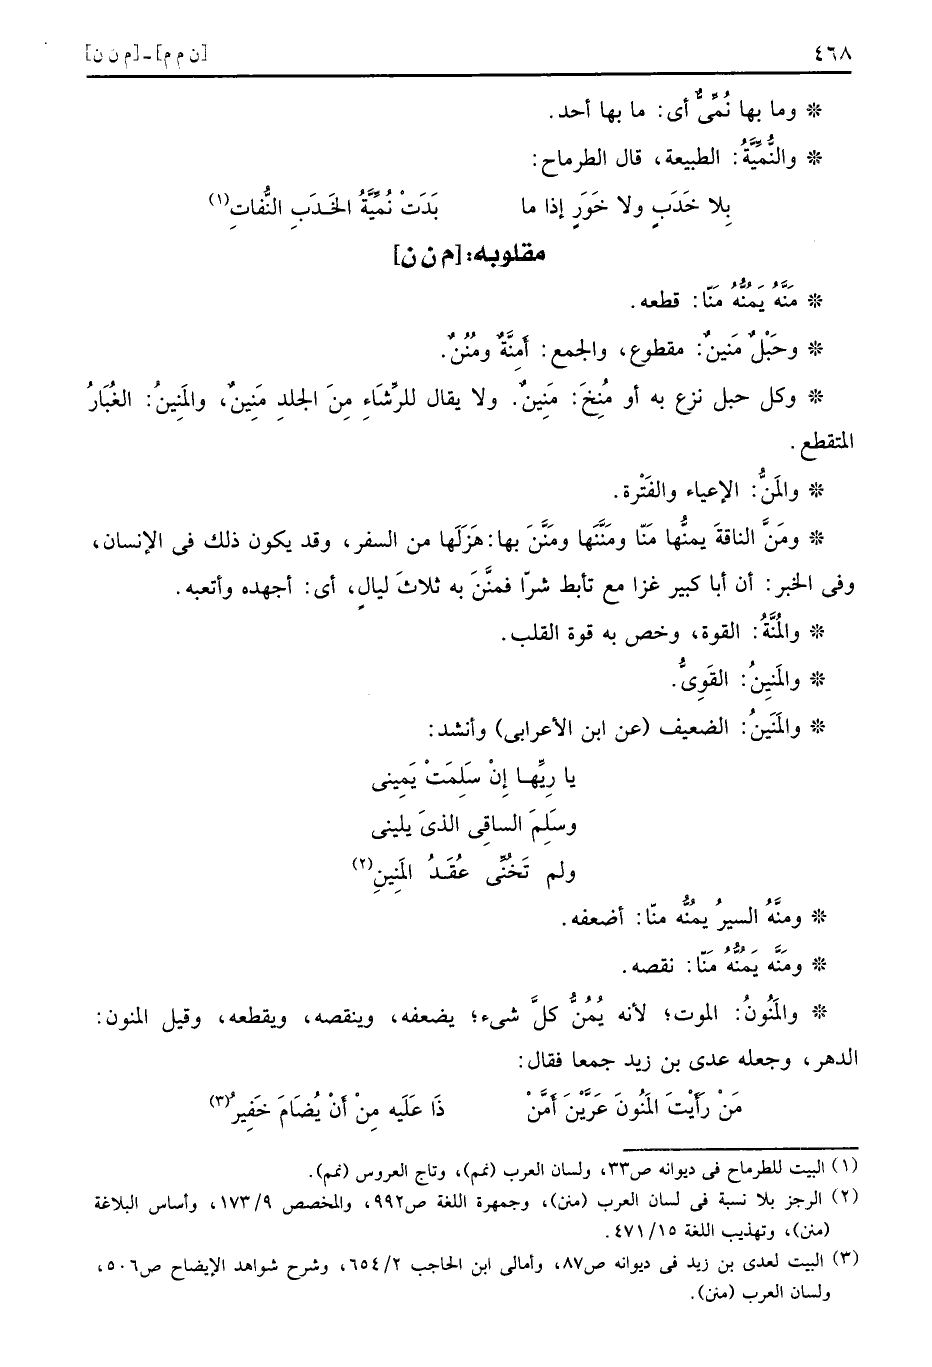 ٤٦٨ [ن م م] ـ [م ن ن]
* وما بها نُمِّىٌّ أى: ما بها أحد.
* والنُّمِّيَّةُ: الطبيعة، قال الطرماح:
بِلا خَدَبٍ ولا خَوَرٍ إذا ما بَدَتْ نُمِّيَّةُ الخَدَبِ النُّفاتِ(١)
مقلوبه: [م ن ن]
* مَنَّهُ يَمُنُّهُ مَنّا: قطعه.
* وحَبْلٌ مَنينٌ: مقطوع، والجمع: أَمِنَّةٌ ومُنُنٌ.
* وكل حبل نزع به أو مُنِحَ: مَنِينٌ. ولا يقال للرِّشَاءِ مِنَ الجلدِ مَنينٌ، والمَنِينُ: الغُبَارُ
المتقطع.
* والمَنُّ: الإعياء والفَتْرة.
* ومَنَّ الناقةَ يمنُّها مَنّا ومَنَّنَها ومَنَّنَ بها: هَزَلَها من السفر، وقد يكون ذلك فى الإنسان،
وفى الخبر: أن أبا كبير غزا مع تأبط شرّا فمنَّنَ به ثلاثَ ليالٍ، أى: أجهده وأتعبه.
* والمُنَّةُ: القوة، وخص به قوة القلب.
* والمَنِينُ: القَوِىُّ.
* والمَنَينُ: الضعيف (عن ابن الأعرابى) وأنشد:
يا رِيَّها إنْ سَلِمَتْ يَمِينى
وسَلِمَ الساقِى الذىَ يلينى
ولم تَخُنِّى عُقَدُ المَنِينِ(٢)
* ومنَّهُ السيرُ يمنُّه منّا: أضعفه.
* ومَنَّه يَمُنُّهُ مَنّا: نقصه.
* والمَنُونُ: الموت؛ لأنه يُمُنُّ كلَّ شىء؛ يضعفه، وينقصه، ويقطعه، وقيل المنون:
الدهر، وجعله عدى بن زيد جمعا فقال:
مَنْ رَأَيْتَ المَنُونَ عَرَّيْنَ أَمَّنْ ذَا عَلَيه مِنْ أنْ يُضَامَ خَفيرُ(٣)
(١) البيت للطرماح فى ديوانه ص٣٣، ولسان العرب (نمم)، وتاج العروس (نمم).
(٢) الرجز بلا نسبة فى لسان العرب (منن)، وجمهرة اللغة ص٩٩٢، والمخصص ٩/١٧٣، وأساس البلاغة
(منن)، وتهذيب اللغة ١٥/٤٧١.
(٣) البيت لعدى بن زيد فى ديوانه ص٨٧، وأمالى ابن الحاجب ٢/٦٥٤، وشرح شواهد الإيضاح ص٥٠٦،
ولسان العرب (منن).